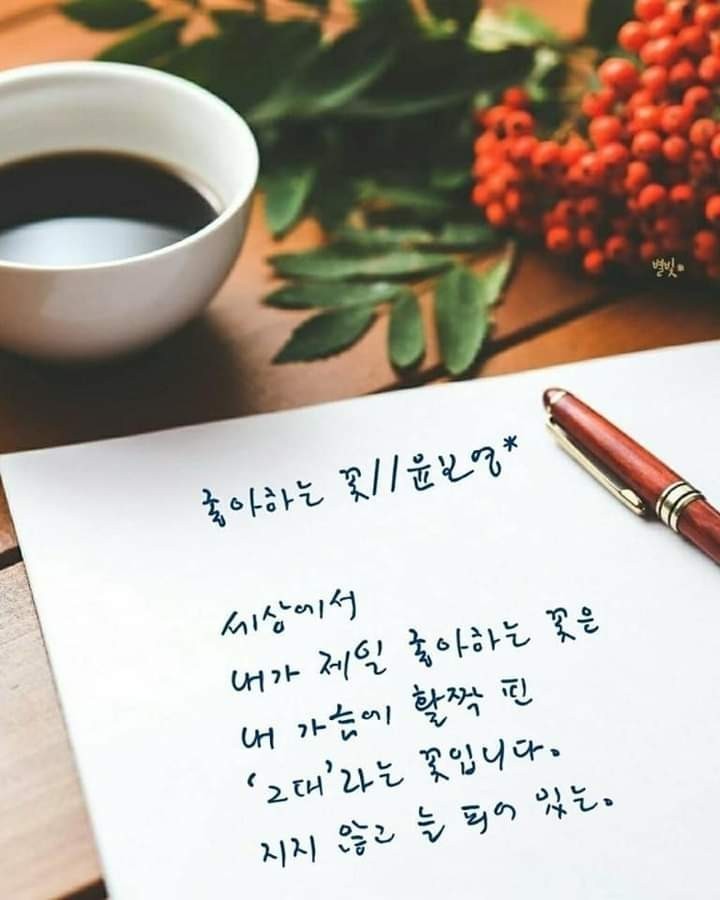 별빛
좋아하는 꽃//윤보영*
세상에서
내가 제일 좋아하는 꽃은
내 가슴에 활짝 핀
'그대'라는 꽃입니다.
지지 않고 늘 피어 있는.